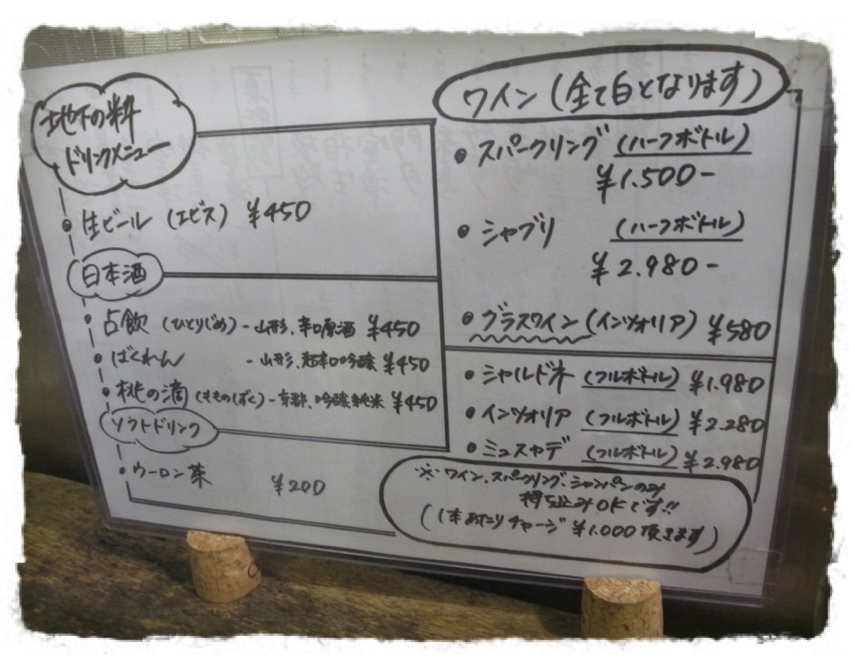 地下の粋
ドリンクメニュー
・生ビール (エビス) ¥450
日本酒
・占飲 (ひとりじめ) - 山形、辛口原酒 ¥450
・ばくれん - 山形、超辛口吟醸 ¥450
・桃の滴 (もものしずく) - 京都、吟醸純米 ¥450
ソフトドリンク
・ウーロン茶 ¥200
ワイン (全て白となります)
・スパークリング (ハーフボトル)
¥1.500-
・シャブリ (ハーフボトル)
¥2.980-
・グラスワイン (インツォリア) ¥580
・シャルドネ (フルボトル) ¥1.980
・インツォリア (フルボトル) ¥2.280
・ミュスカデ (フルボトル) ¥2.980
※ワイン、スパークリング、シャンパンのみ
持ち込みOKです!!
(1本あたりチャージ ¥1.000頂きます)